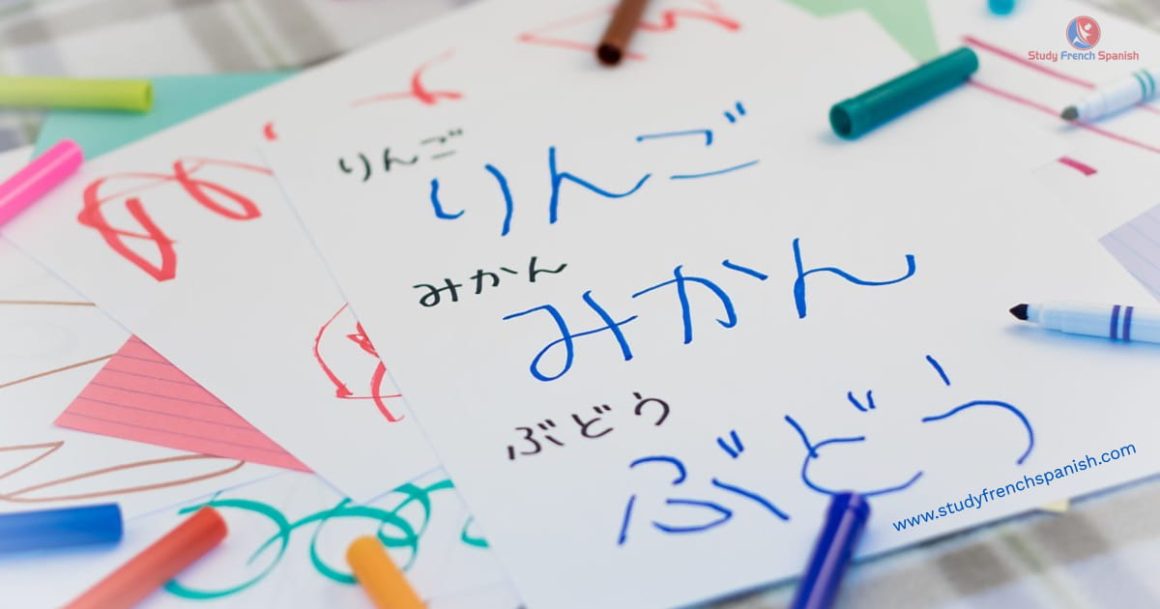 Study French Spanish
りんご
りんご
みかん
みかん
ぶどう
ぶどう
www.studyfrenchspanish.com